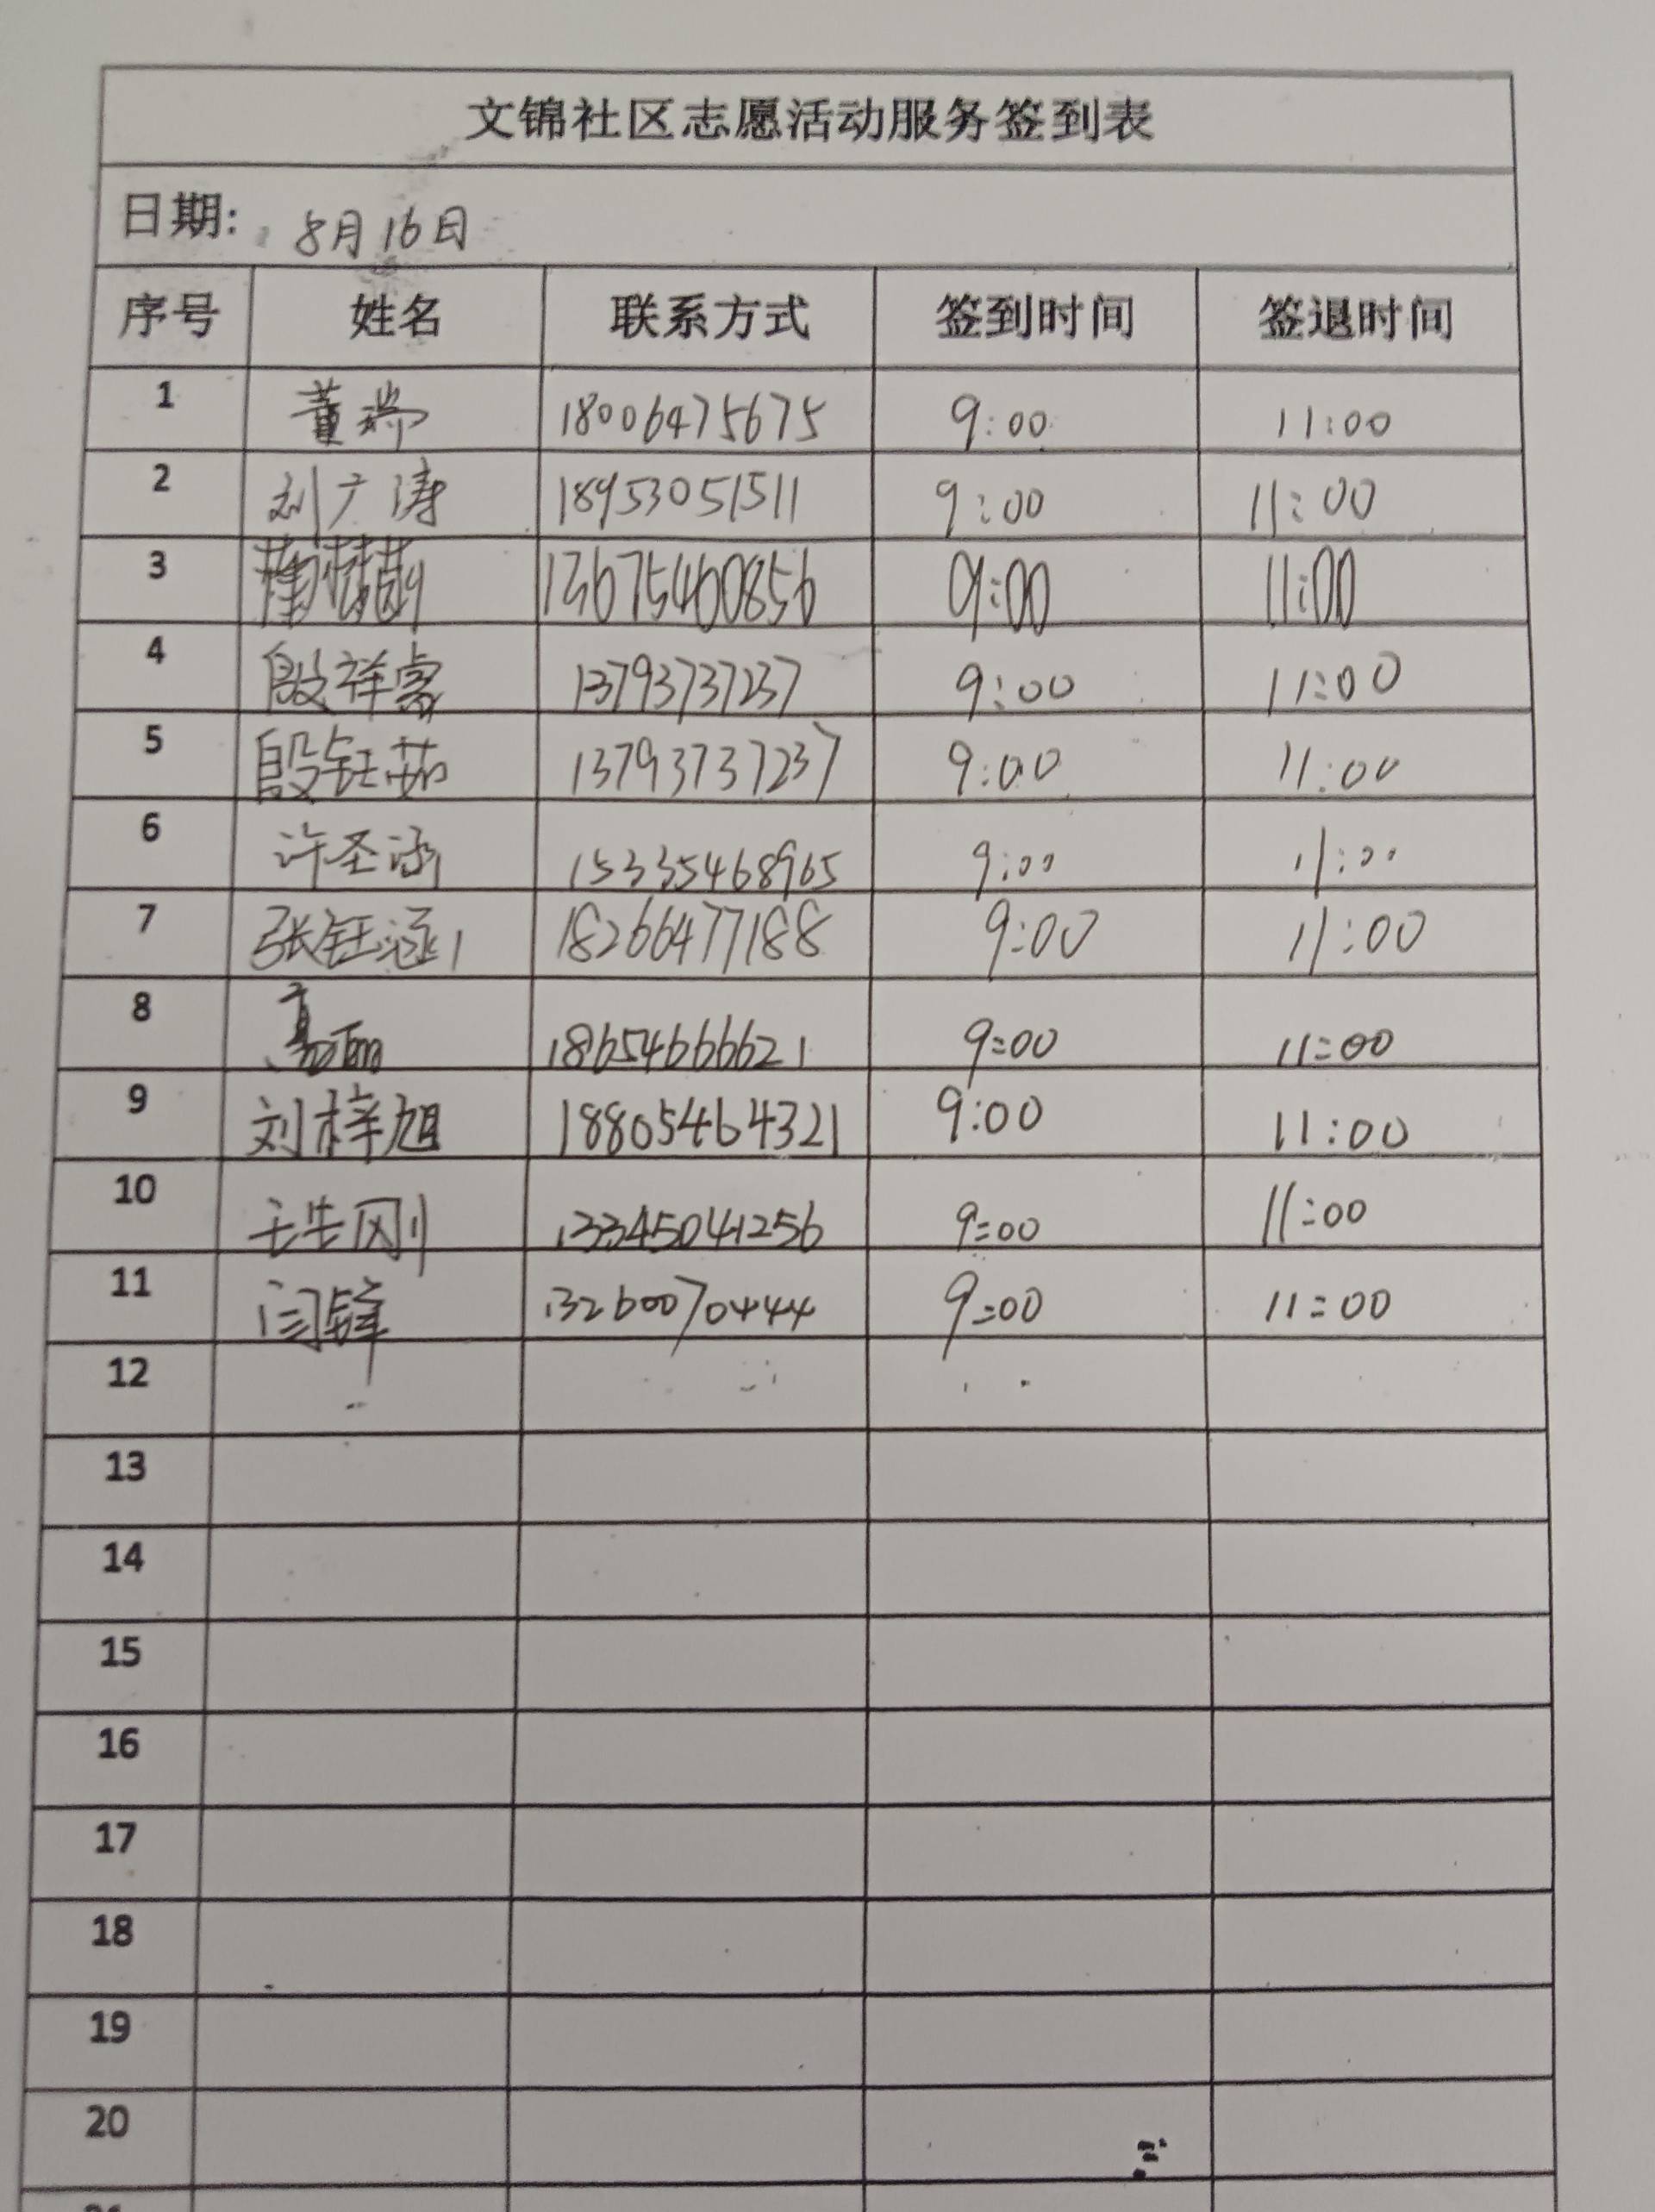 文锦社区志愿活动服务签到表
日期: 8月16日
序号 姓名 联系方式 签到时间 签退时间
1 董瑞 18006475675 9:00 11:00
2 刘广涛 18953051511 9:00 11:00
3 13675460856 9:00 11:00
4 殷祥睿 13793737237 9:00 11:00
5 殷钰茹 13793737237 9:00 11:00
6 许圣涵 15335468965 9:00 11:00
7 张钰涵 18266477188 9:00 11:00
8 高丽 18654666621 9:00 11:00
9 刘梓旭 18805464321 9:00 11:00
10 刚 13345041256 9:00 11:00
11 闫锋 13260070444 9:00 11:00
12
13
14
15
16
17
18
19
20